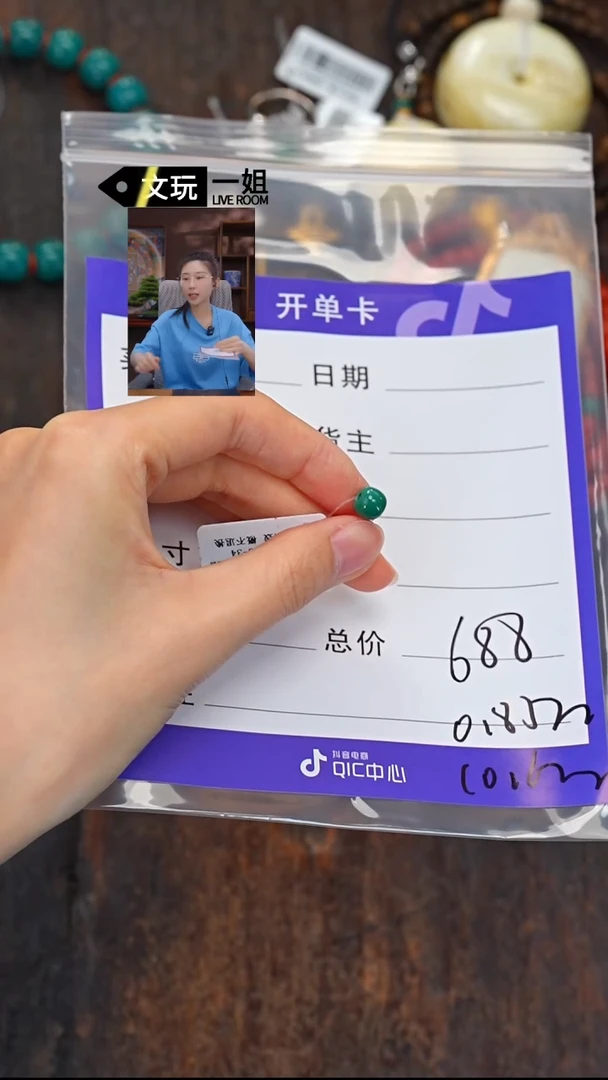 文玩 一姐
LIVE ROOM
开单卡
日期
货主
寸
总价 688
抖音电商
QIC中心